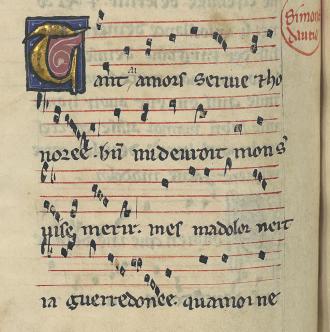 Simon
dautie
Tant ai amors seruie ⁊ ho
noree . bn̄ mi deuroit mon s'
uise merir . mes ma dolor nert
ia guerredonee . qua moi ne